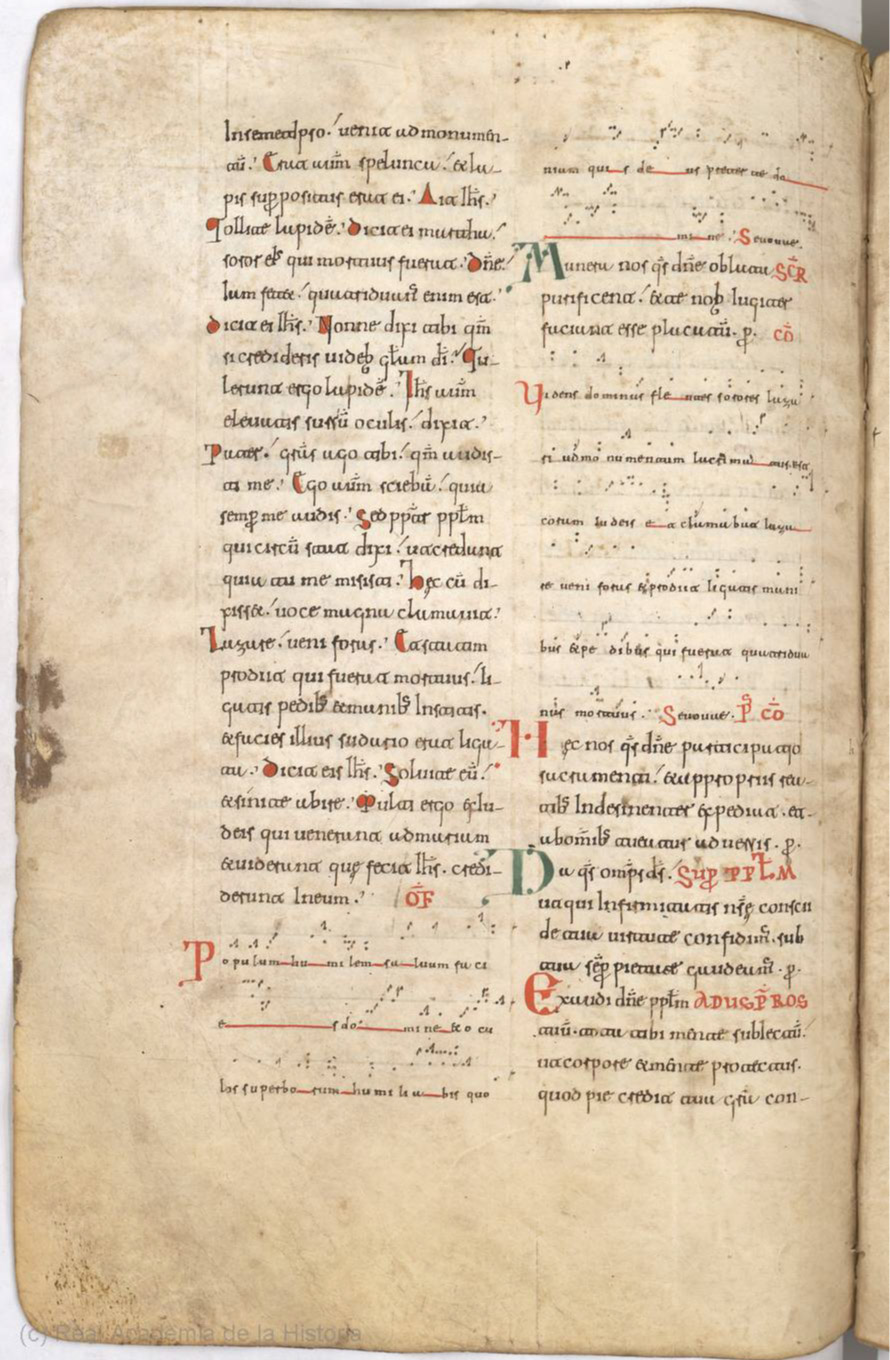 Insemetipso. uenit ad monumen-
tū. Erat autem spelunca. & la-
pis suppositus erat ei. Ait ihs.
Tollite lapidē. Dicit ei martha.
soror ei qui mortuus fuerat. Dn̄e.
Iam fetet. quatriduanus enim est.
Dicit ei ihs. Nonne dixi tibi qm̄
si credideris uideb gl̄am dī. Tu-
lerunt ergo lapidē. Ihs autem
eleuatis sursū oculis. dixit.
Pater. grās ago tibi. qm̄ audis-
ti me. Ego autem sciebā. quia
semp me audis. Sed ppter pplm
qui circū stat dixi. ut credant
quia tu me misisti. hęc cū di-
xisset. uoce magna clamauit.
Lazare. ueni foras. Et statim
prodiit qui fuerat mortuus. li-
gatus pedib & manib Institis.
& facies illius sudario erat liga-
ta. Dicit eis ihs. Soluite eū.
& sinite abire. Multi ergo ex iu-
deis qui uenerant ad mariam
& uiderant quę fecit ihs. credi-
derunt In eum. OF
Populum hu mi lem sa luum fa ci
e s do mi ne & o cu
los superbo rum hu mi li a bis quo
niam quis de us preter te do
mi ne. Seuouae.
Munera nos qs dn̄e oblata SCR
purificent. & te nob iugiter
faciant esse placatū. p. CŌ
Videns dominus fle ntes sorores laza
ri ad mo numentum lacrimatus est
coram iudeis e t clamabat laza
re ueni foras & prodiit ligatis mani
bus & pe dibus qui fuerat quatridua
nus mortuus. Seuouae. P CŌ
Hęc nos qs dn̄e participatio
sacramenti. & a propriis rea-
tib Indesinenter expediat. et
ab omib tueatur aduersis. p.
Da qs omps ds. SUP PPLM
ut qui In infirmitatis nr̄ę conscii
de tua uirtute confidim. sub
tua sēp pietate gaudeam. p.
Exaudi dn̄e pplm AD USPROS
tuū. tota tibi mente subiectū.
ut corpore & mente protectus.
quod pie credit tua grā con-